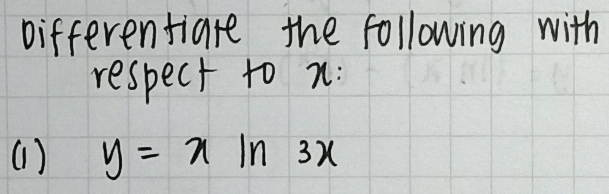 Differentiate the following with
respect to x:
(1) y = x ln 3x